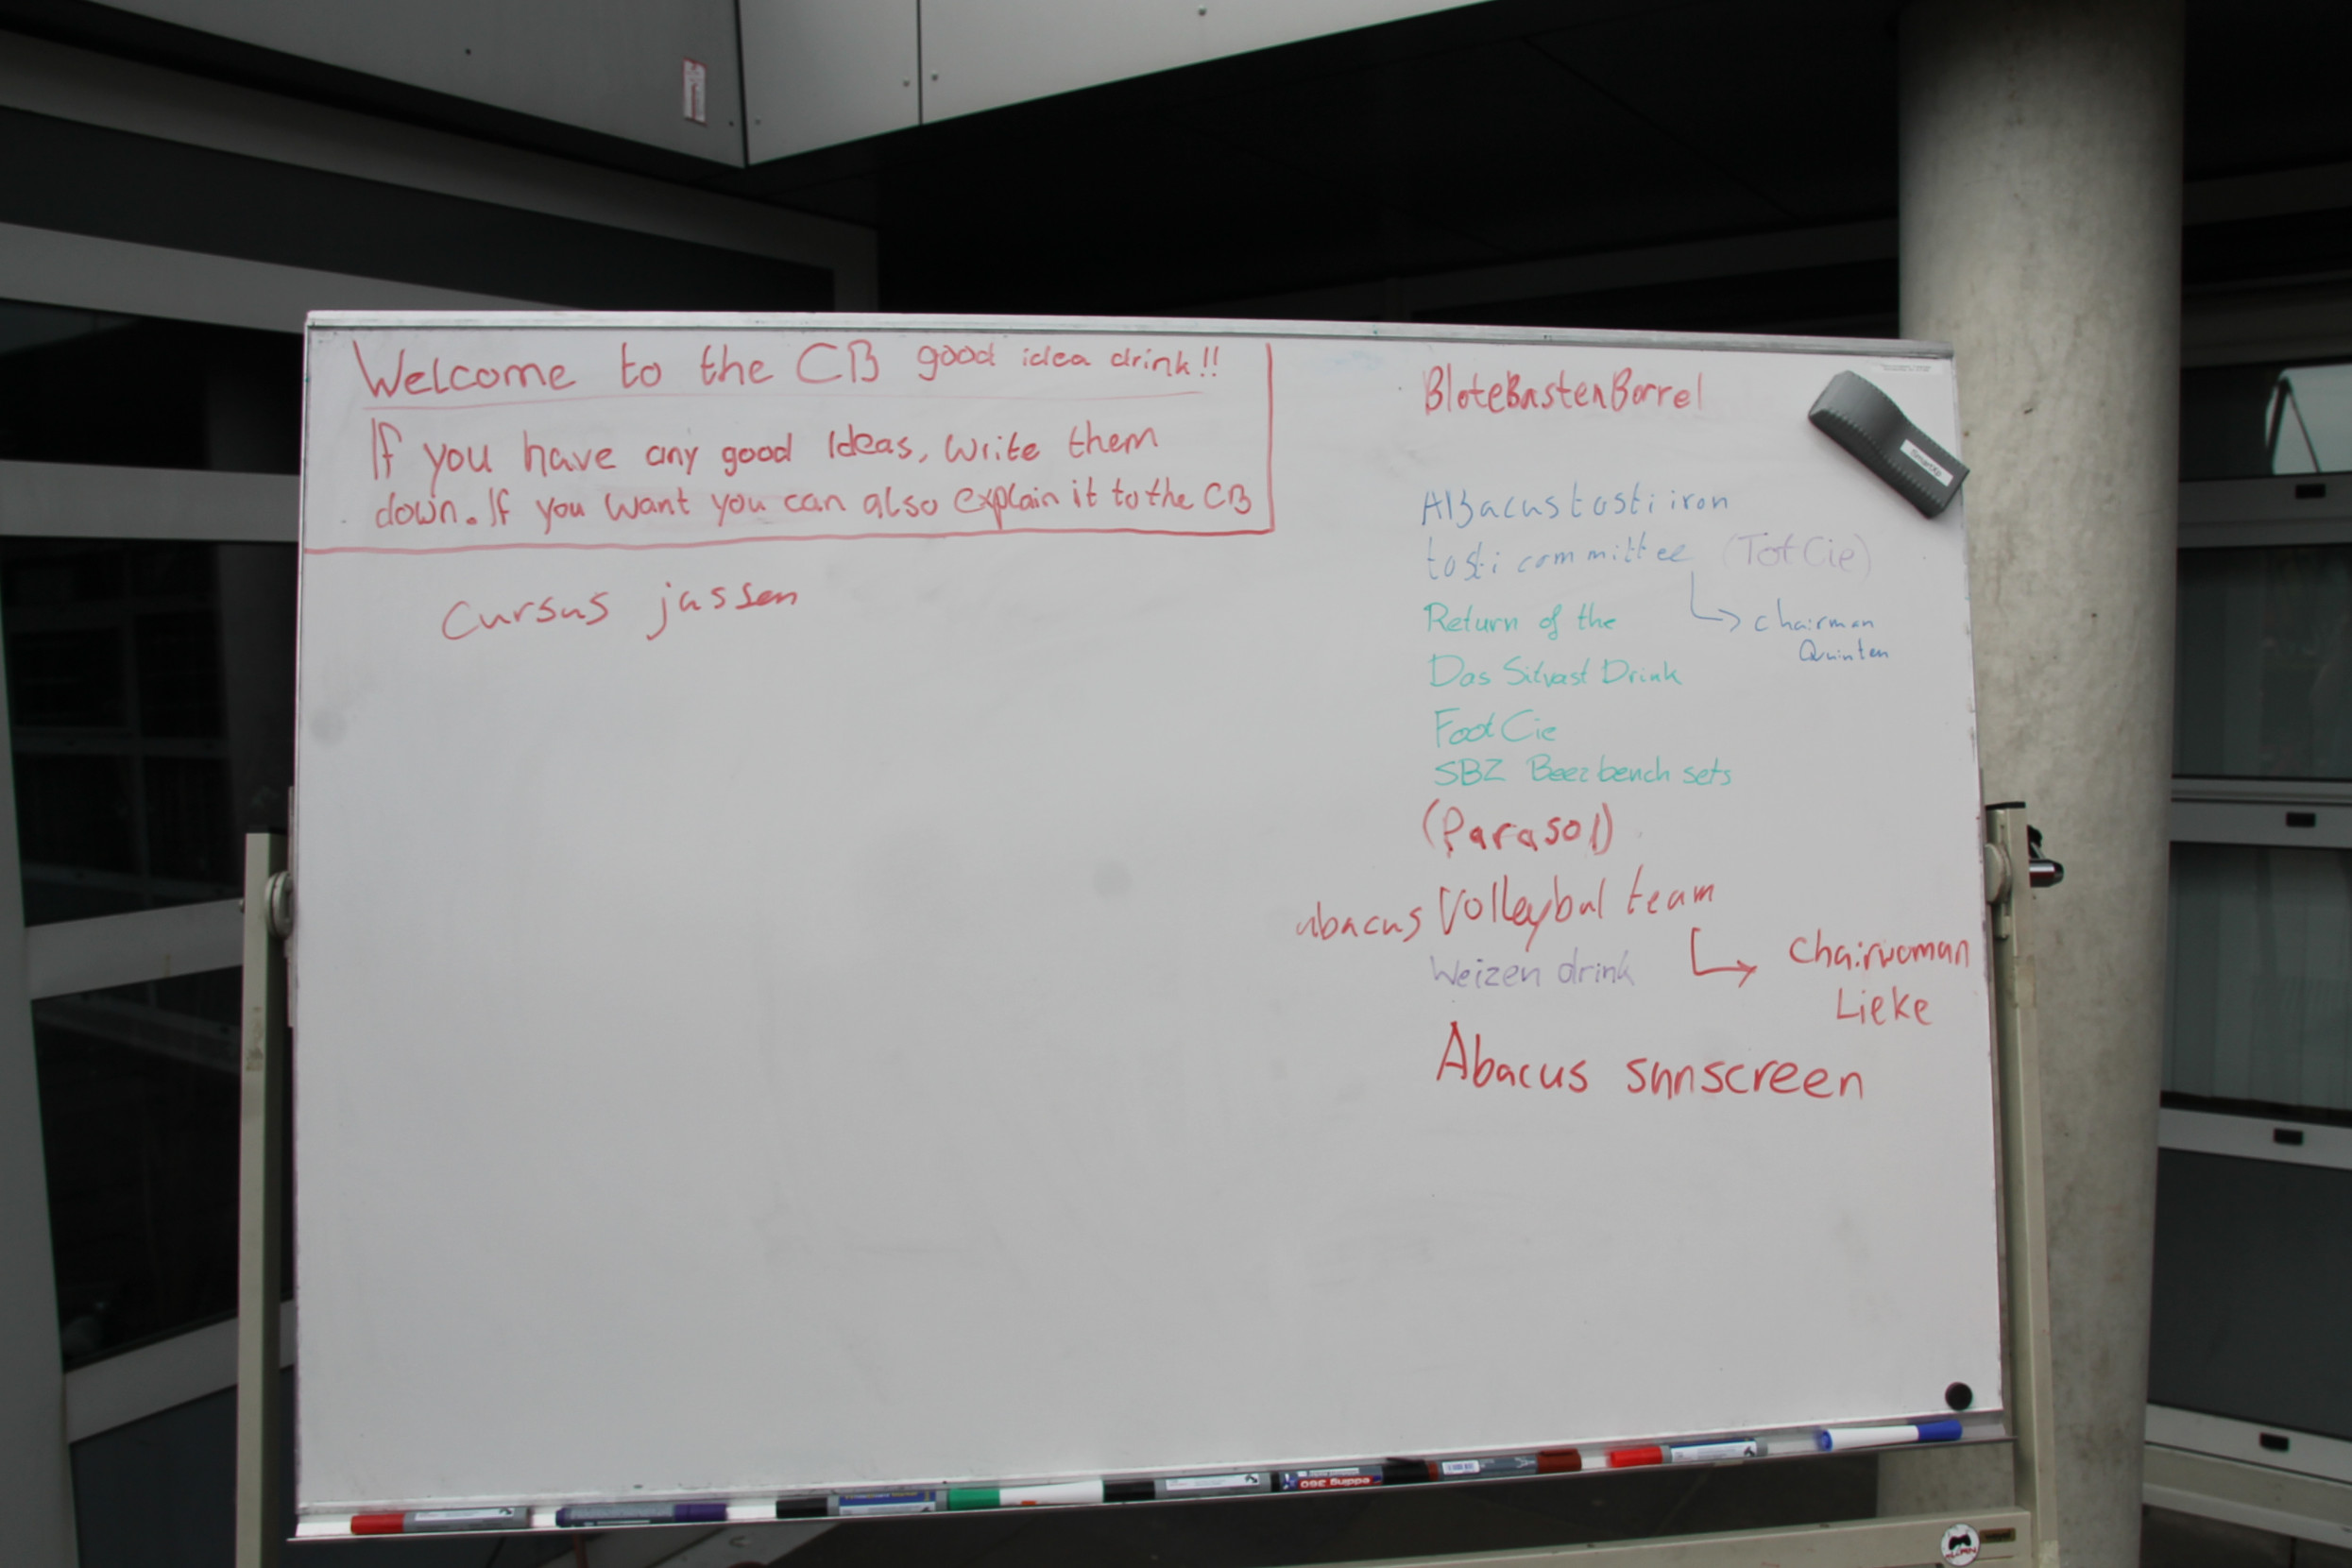 Welcome to the CB good idea drink!!
If you have any good Ideas, write them
down. If you want you can also explain it to the CB
Cursus jassen
BloteBastenBorrel
ABacus tosti iron
tosti committee (TotCie)
chairman
Quinten
Return of the
Das Silvast Drink
FootCie
SBZ Beerbench sets
(Parasol)
abacus Volleybal team
Chairwoman
Lieke
Weizen drink
Abacus sunscreen
edding 360